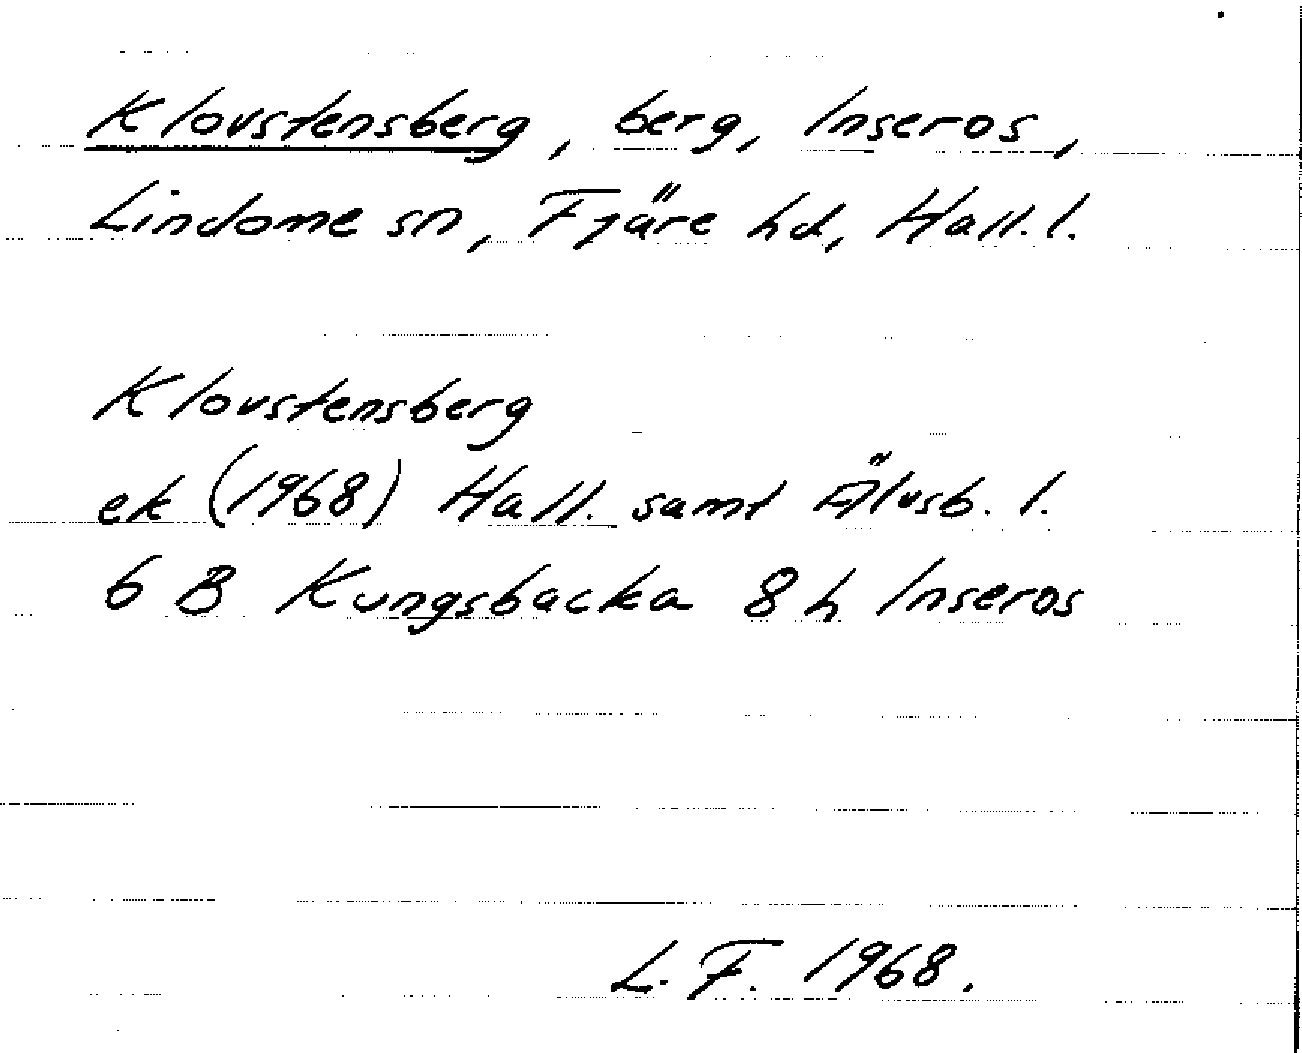 Klovstensberg, berg, Inseros,
Lindome sn, Fjäre hd, Hall. l.
Klovstensberg
ek (1968) Hall. samt Älvsb. l.
6 B Kungsbacka 8 h Inseros
L. F. 1968.